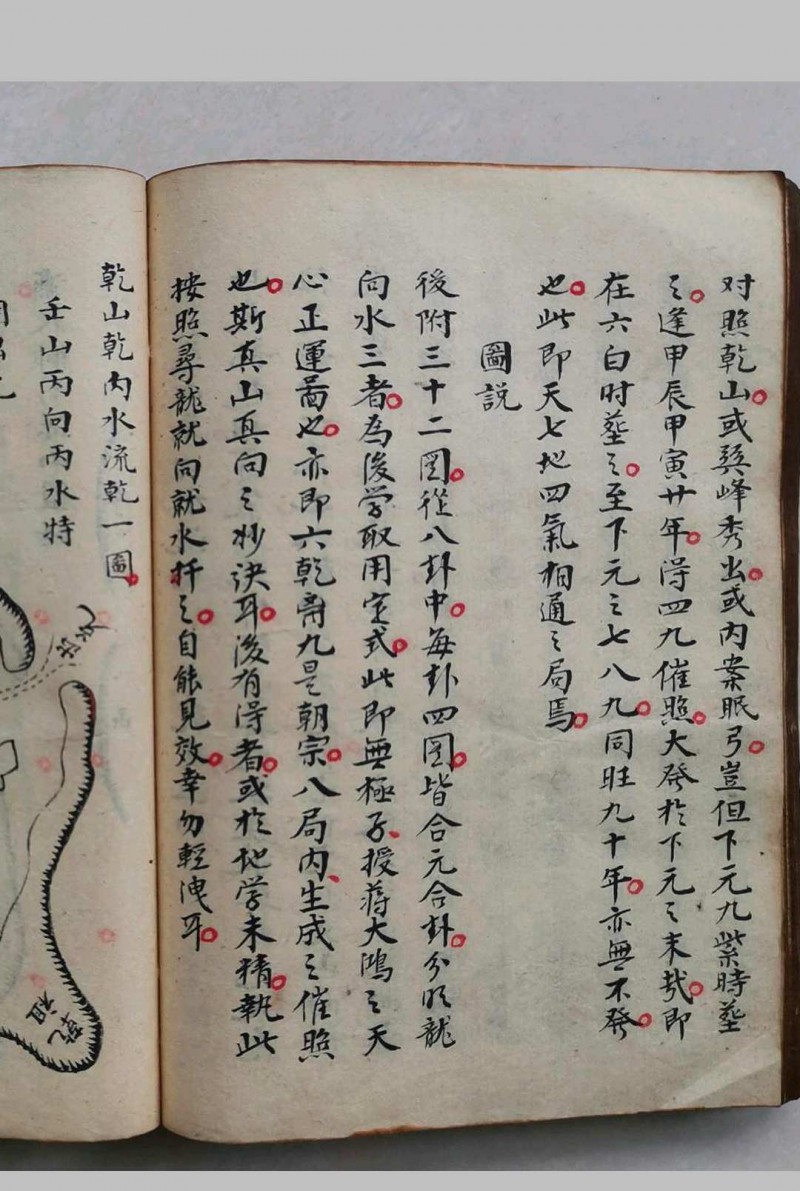 对照乾山。或巽峰秀出。或内案眠弓。豈但下元九紫時塟
之。逢甲辰甲寅廿年。得四九催照。大發於下元之末哉。即
在六白时塟之。至下元之七八九。同旺九十年。亦無不發。
也。此即天七地四氣相通之局焉。
圖説
後附三十二圖。從八卦中。每卦四圖。皆合元合卦。分明龍
向水三者。為後学取用定式。此即無極子、授蔣大鴻之天
心正運啚也。亦即六乾兼九是朝宗。八局内、生成之催照
也。斯真山真向之妙訣耳。後有得者。或於地学未精。執此
按照尋龍就向就水扦之。自能見效。幸勿輕洩耳。
乾山乾向水流乾一圖。
壬山丙向丙水特
乾祖